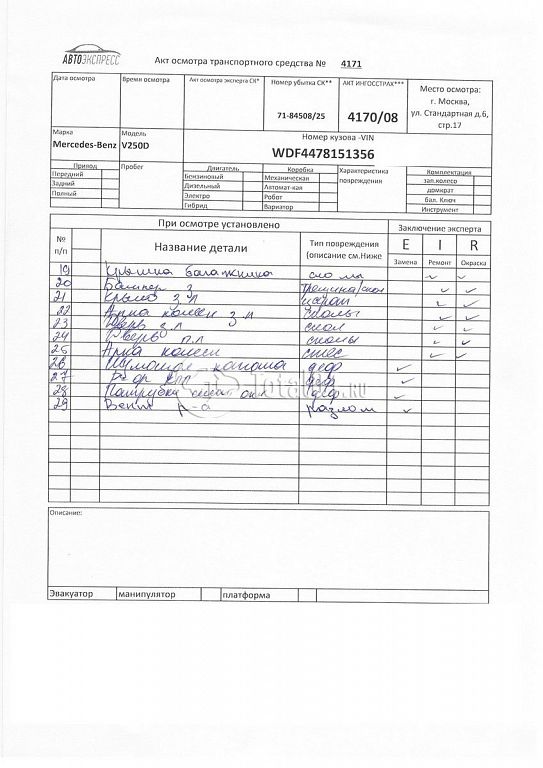 АВТОЭКСПРЕСС
Акт осмотра транспортного средства № 4171
Дата осмотра Время осмотра Акт осмотра эксперта СК* Номер убытка СК** АКТ ИНГОССТРАХ*** Место осмотра:
г. Москва,
ул. Стандартная д.6,
стр.17
71-84508/25 4170/08
Марка Модель Номер кузова -VIN
Mercedes-Benz V250D WDF4478151356
Привод Пробег Двигатель Коробка Характеристика повреждения Комплектация
Передний Бензиновый Механическая зап.колесо
Задний Дизельный Автомат-кая домкрат
Полный Электро Робот бал. Ключ
Гибрид Вариатор Инструмент
При осмотре установлено Заключение эксперта
№ п/п Название детали Тип повреждения (описание см.Ниже E I R
Замена Ремонт Окраска
19 Крышка багажника сколы
20 Бампер з трещина/скол
21 Крыло з л
22 Арка колеса з л сколы
23 Дверь з л скол
24 Дверь п л сколы
25 Арка колеса
26 деф
27 деф
28 Патрубки деф
29 разлом
Описание:
Эвакуатор манипулятор платформа